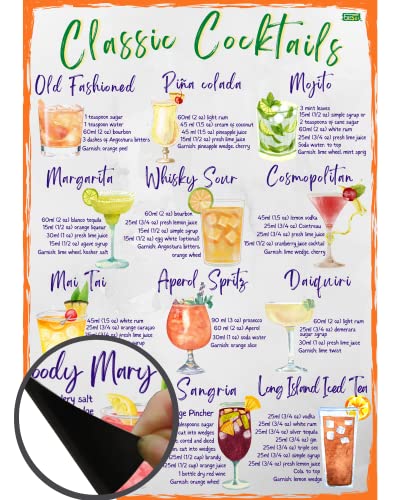 Classic Cocktails
Old Fashioned
1 teaspoon sugar
1 teaspoon water
60ml (2 oz) bourbon
3 dashes of Angostura bitters
Garnish: orange peel
Piña colada
60ml (2 oz) light rum
45 ml (1.5 oz) cream of coconut
45 ml (1.5 oz) pineapple juice
15ml (1/2 oz) fresh lime juice
Garnish: pineapple wedge, cherry
Mojito
3 mint leaves
15ml (1/2 oz) simple syrup or
2 teaspoons of cane sugar
60ml (2 oz) white rum
25ml (3/4 oz) fresh lime juice
Soda water: to top
Garnish: lime wheel, mint sprig
Margarita
60ml (2 oz) blanco tequila
15ml (1/2 oz) orange liqueur
30ml (1 oz) fresh lime juice
15ml (1/2 oz) agave syrup
Garnish: lime wheel, kosher salt
Whisky Sour
60ml (2 oz) bourbon
25ml (3/4 oz) fresh lemon juice
15ml (1/2 oz) simple syrup
15ml (1/2 oz) egg white (optional)
Garnish: Angostura bitters,
orange wheel
Cosmopolitan
45ml (1.5 oz) lemon vodka
25ml (3/4 oz) Cointreau
25ml (3/4 oz) fresh lime juice
15ml (1/2 oz) cranberry juice cocktail
Garnish: lime wedge, cherry
Mai Tai
45ml (1.5 oz) white rum
25ml (3/4 oz) orange curaçao
25ml (3/4 oz) fresh lime juice
Aperol Spritz
90 ml (3 oz) prosecco
60 ml (2 oz) Aperol
30ml (1 oz) soda water
Garnish: orange slice
Daiquiri
60ml (2 oz) light rum
25ml (3/4 oz) demerara
sugar syrup
30ml (1 oz) fresh lime juice
Garnish: lime twist
oody Mary
ery salt
Sangria
ge Pincher
cut into wedges
cored and diced
cut into wedges
25ml (1/2 cup) brandy
1 bottle dry red wine
Garnish: orange wheel
Long Island Iced Tea
25ml (3/4 oz) vodka
25ml (3/4 oz) white rum
25ml (3/4 oz) silver tequila
25ml (3/4 oz) gin
25ml (3/4 oz) triple sec
25ml (3/4 oz) simple syrup
25ml (3/4 oz) fresh lemon juice
Cola: to top
Garnish: lemon wedge